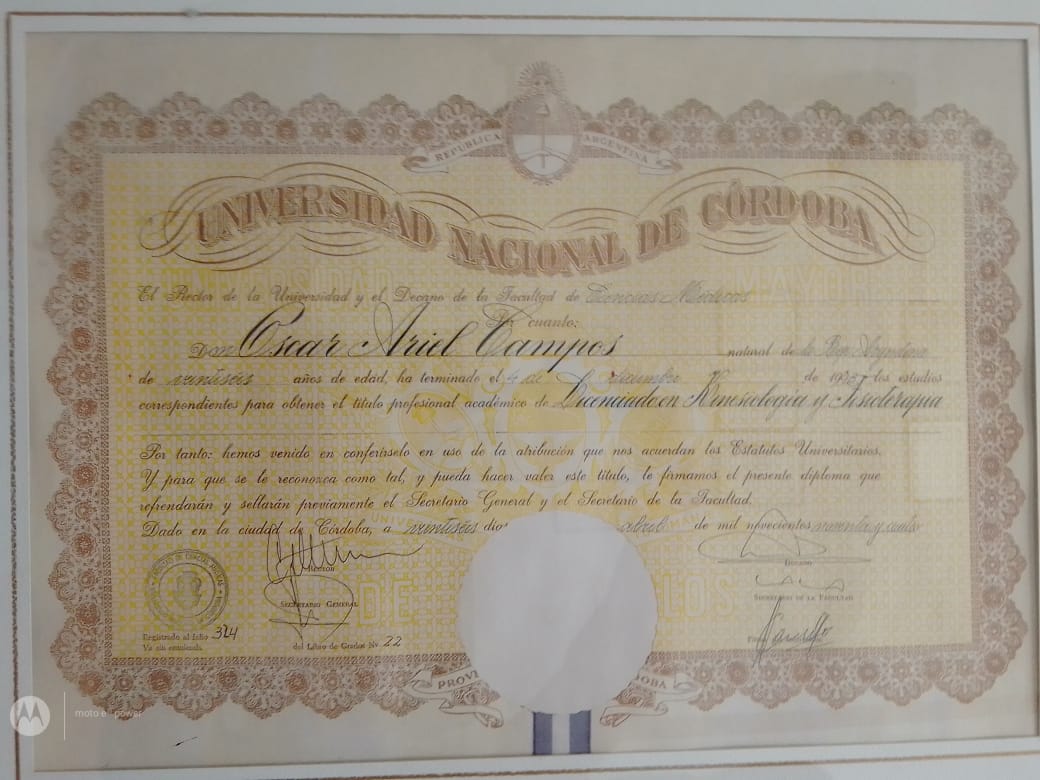 REPUBLICA ARGENTINA
UNIVERSIDAD NACIONAL DE CÓRDOBA
El Rector de la Universidad y el Decano de la Facultad de Ciencias Médicas
Por cuanto:
Don Oscar Ariel Campos natural de la Rep. Argentina
de veintiséis años de edad, ha terminado el 4 de diciembre de los estudios
correspondientes para obtener el título profesional académico de Licenciado en Kinesiología y Fisioterapia
Por tanto: hemos venido en conferírselo en uso de la atribución que nos acuerdan los Estatutos Universitarios.
Y para que se le reconozca como tal, y pueda hacer valer este título, le firmamos el presente diploma que
refrendarán y sellarán previamente el Secretario General y el Secretario de la Facultad.
Dado en la ciudad de Córdoba, a veintiséis días abril de mil novecientos noventa y cuatro
RECTOR
DECANO
SECRETARIO GENERAL
SECRETARIO DE LA FACULTAD
Registrado al folio 324
del Libro de Grados Nº 22
Va sin enmienda.
moto e power